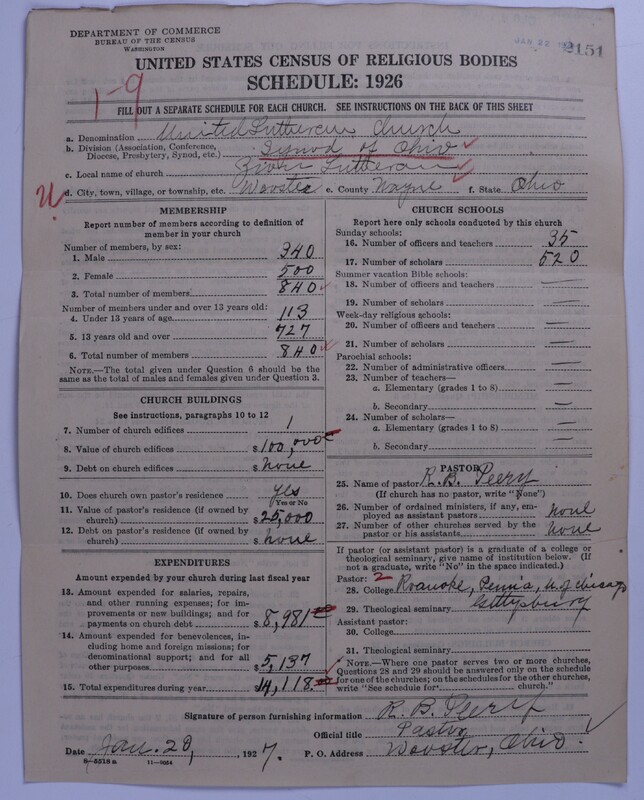 DEPARTMENT OF COMMERCE
BUREAU OF THE CENSUS
WASHINGTON
JAN 22
2151
UNITED STATES CENSUS OF RELIGIOUS BODIES
SCHEDULE: 1926
1-9
FILL OUT A SEPARATE SCHEDULE FOR EACH CHURCH. SEE INSTRUCTIONS ON THE BACK OF THIS SHEET
a. Denomination United Lutheran Church
b. Division (Association, Conference, Diocese, Presbytery, Synod, etc.) Synod of Ohio
c. Local name of church Zion Lutheran
U. d. City, town, village, or township, etc. Wooster e. County Wayne f. State Ohio
MEMBERSHIP
Report number of members according to definition of
member in your church
Number of members, by sex:
1. Male 340
2. Female 500
3. Total number of members 840
Number of members under and over 13 years old:
4. Under 13 years of age 113
5. 13 years old and over 727
6. Total number of members 840
NOTE.—The total given under Question 6 should be
same as the total of males and females given under Question 3.
CHURCH BUILDINGS
See instructions, paragraphs 10 to 12
7. Number of church edifices 1
8. Value of church edifices $100,000
9. Debt on church edifices $ none
10. Does church own pastor's residence yes
Yes or No
11. Value of pastor's residence (if owned by
church) $25,000
12. Debt on pastor's residence (if owned by
church) $ none
EXPENDITURES
Amount expended by your church during last fiscal year
13. Amount expended for salaries, repairs,
and other running expenses; for im-
provements or new buildings; and for
payments on church debt $8,981
14. Amount expended for benevolences, in-
cluding home and foreign missions; for
denominational support; and for all
other purposes $5,137
15. Total expenditures during year $14,118.
CHURCH SCHOOLS
Report here only schools conducted by this church
Sunday schools:
16. Number of officers and teachers 35
17. Number of scholars 520
Summer vacation Bible schools:
18. Number of officers and teachers —
19. Number of scholars —
Week-day religious schools:
20. Number of officers and teachers —
21. Number of scholars —
Parochial schools:
22. Number of administrative officers —
23. Number of teachers—
a. Elementary (grades 1 to 8) —
b. Secondary —
24. Number of scholars—
a. Elementary (grades 1 to 8) —
b. Secondary —
PASTOR
25. Name of pastor R. B. Peery
(If church has no pastor, write "None")
26. Number of ordained ministers, if any, em-
ployed as assistant pastors none
27. Number of other churches served by the
pastor or his assistants none
If pastor (or assistant pastor) is a graduate of a college or
theological seminary, give name of institution below. (If
not a graduate, write "No" in the space indicated.)
Pastor: 2
28. College Roanoke, Penna, U. of Chicago
29. Theological seminary Gettysburg
Assistant pastor:
30. College
31. Theological seminary
NOTE.—Where one pastor serves two or more churches,
Questions 28 and 29 should be answered only on the schedule
for one of the churches; on the schedules for the other churches,
write "See schedule for church."
Signature of person furnishing information R. B. Peery
Official title Pastor
Date Jan. 20, 1927. P. O. Address Wooster, Ohio.
8—5518 a 11—9054